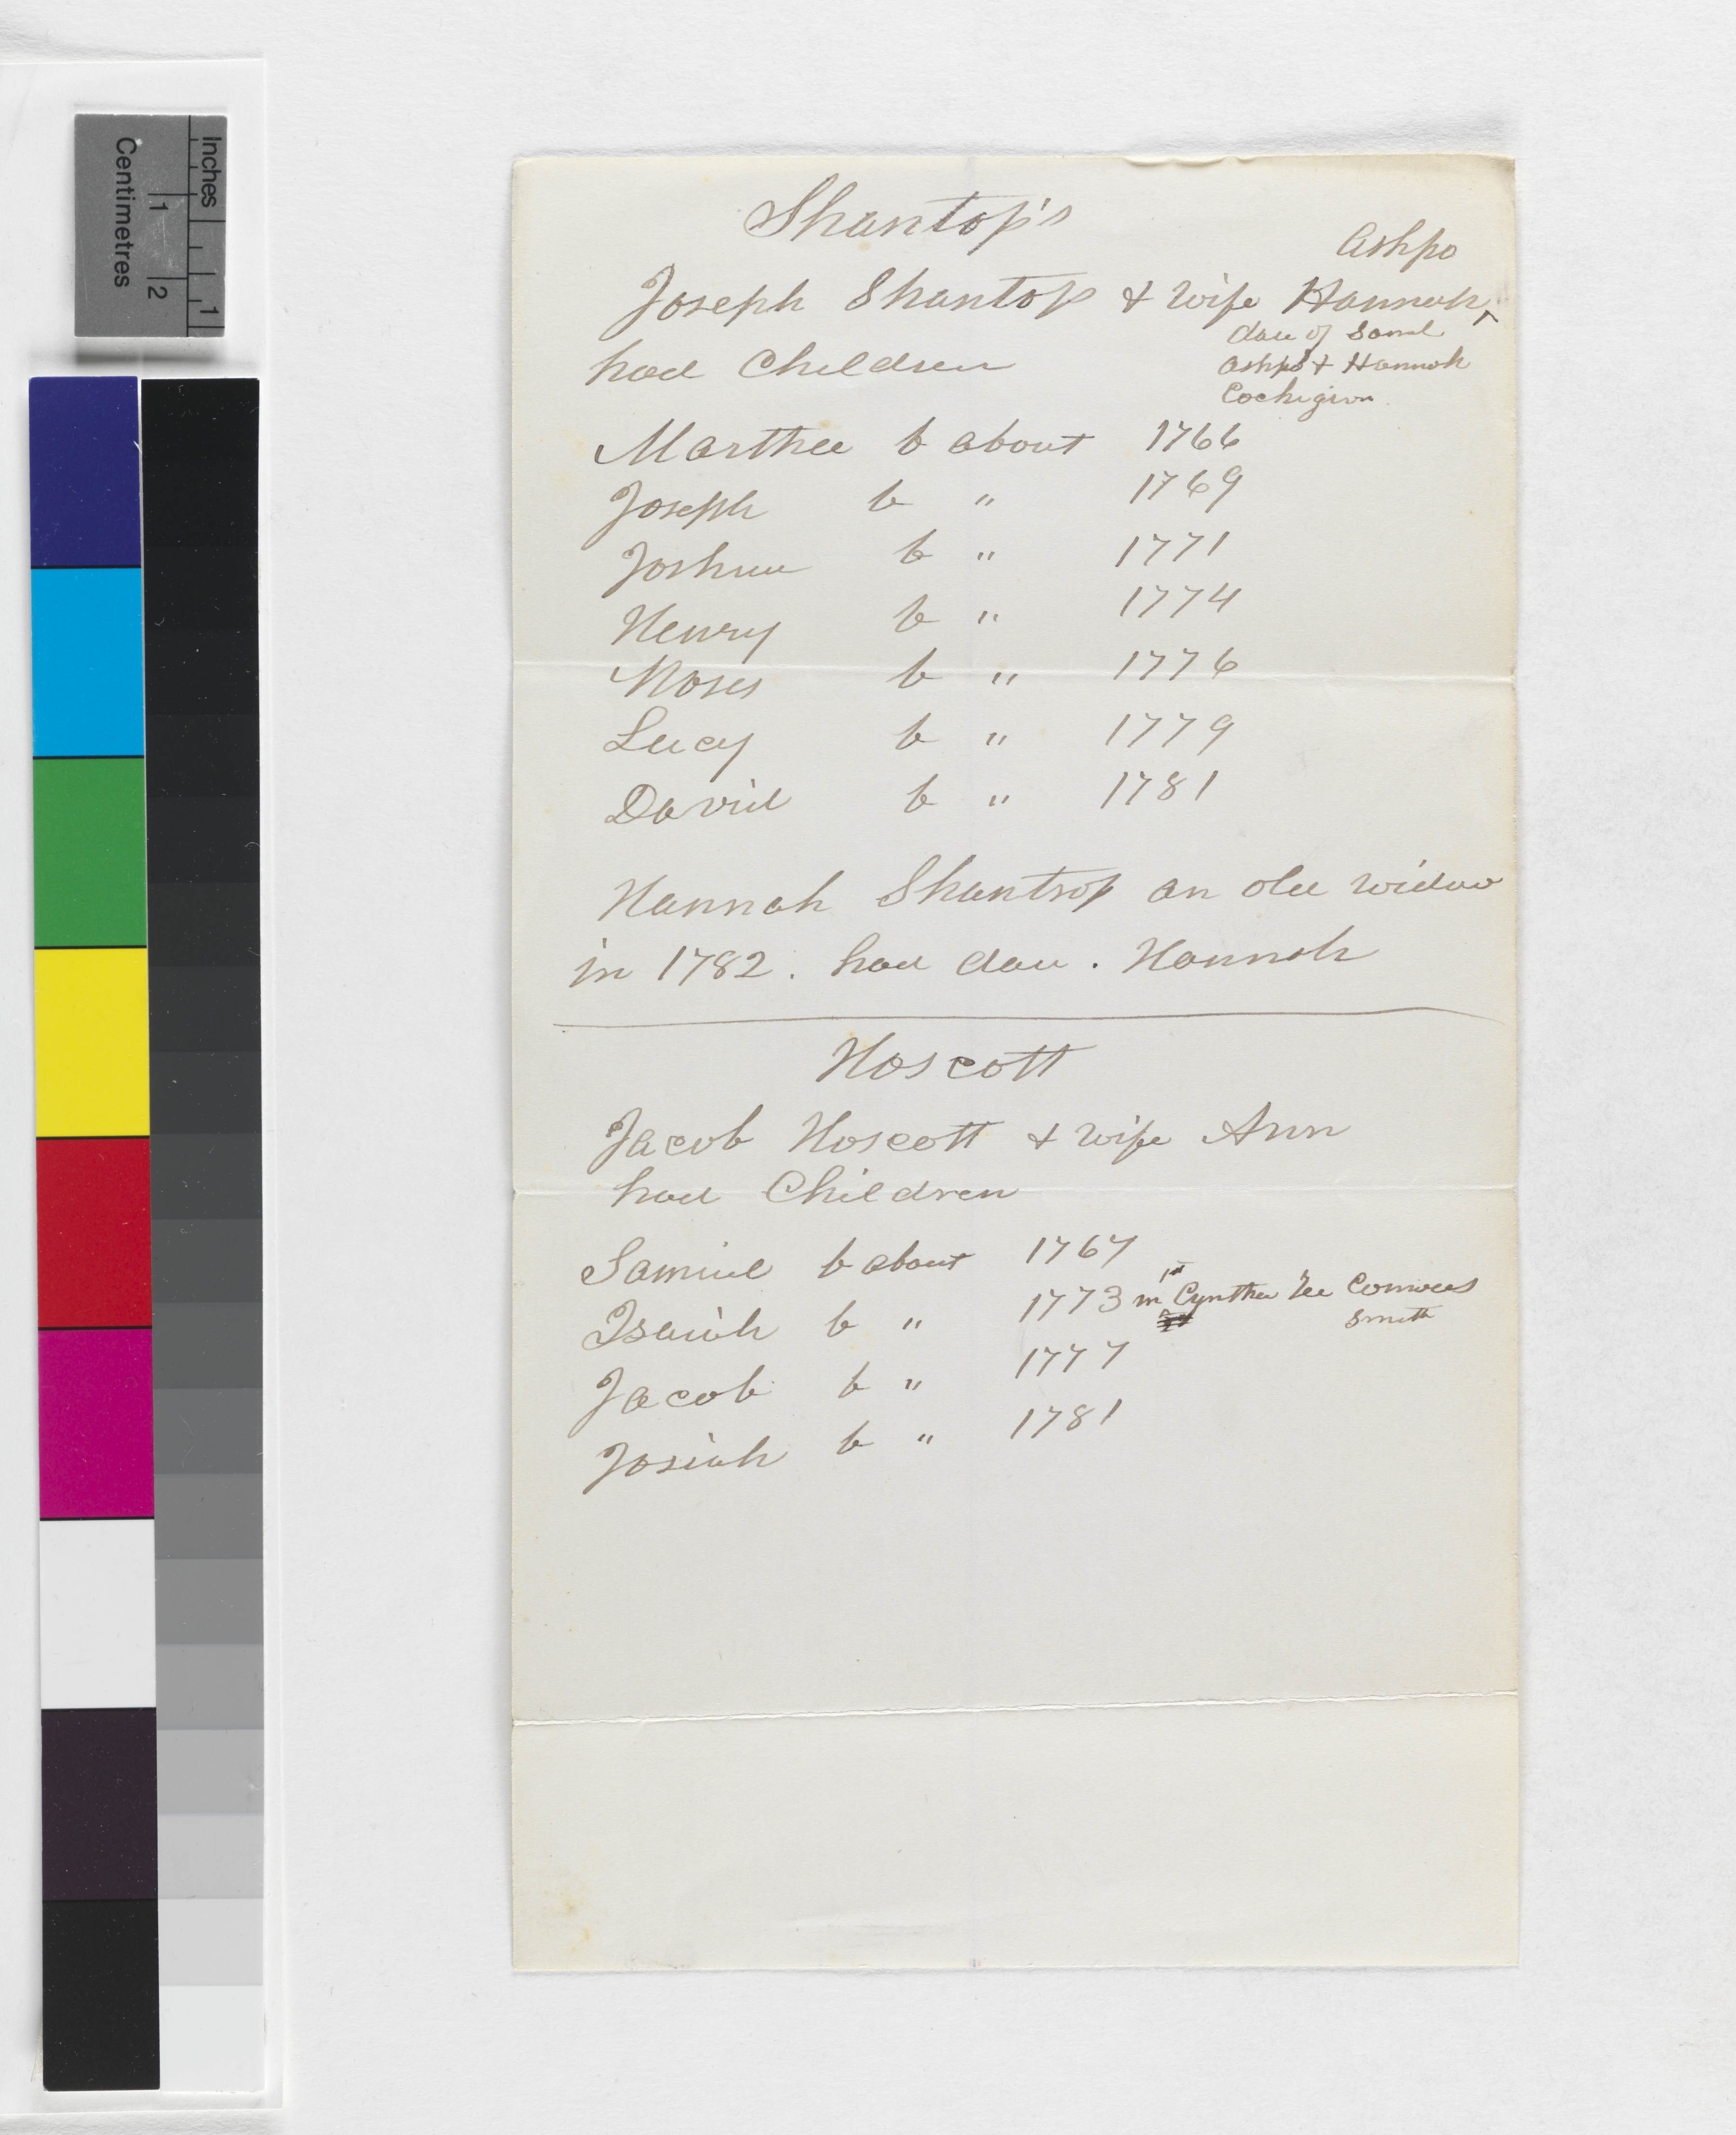 Inches
1
Centimetres
1
2
Shantop's
Ashpo
Joseph Shantop & wife Hannah ^
dau of Saml
had Children
Ashpo & Hannah
Cochegion
Martha b about 1766
Joseph b " 1769
Joshua b " 1771
Henry b " 1774
Moses b " 1776
Lucy b " 1779
David b " 1781
Hannah Shantop an old widow
in 1782. had dau. Hannah
Hoscott
Jacob Hoscott & wife Ann
had Children
Samuel b about 1767
Isaiah b " 1773 m 1st Cynthia Tee
Smith
Jacob b " 1777
Josiah b " 1781